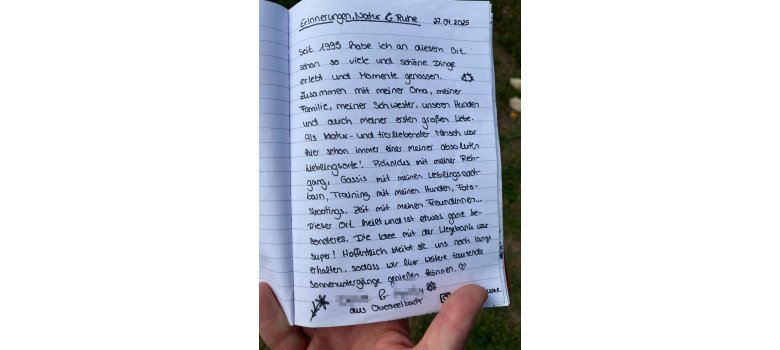 Erinnerungen, Natur & Ruhe 27.04.2025
Seit 1995 habe ich an diesem Ort
schon so viele und schöne Dinge
erlebt und Momente genossen.
Zusammen mit meiner Oma, meiner
Familie, meiner Schwester, unseren Hunden
und auch meiner ersten großen Liebe.
Als Natur- und tierliebender Mensch war
hier schon immer einer meiner absoluten
Lieblingsorte! Picknicks mit meiner Reh-
gang, Gassis mit meinen Lieblingsnach-
barn, Training mit meinen Hunden, Foto-
shootings, Zeit mit meinen Freundinnen...
Dieser Ort heilt und ist etwas ganz be-
sonderes. Die Idee mit der Liegebank war
super! Hoffentlich bleibt sie uns noch lange
erhalten, sodass wir hier weitere tausende
Sonnenuntergänge genießen können. ♡
&
aus Oberseelbach